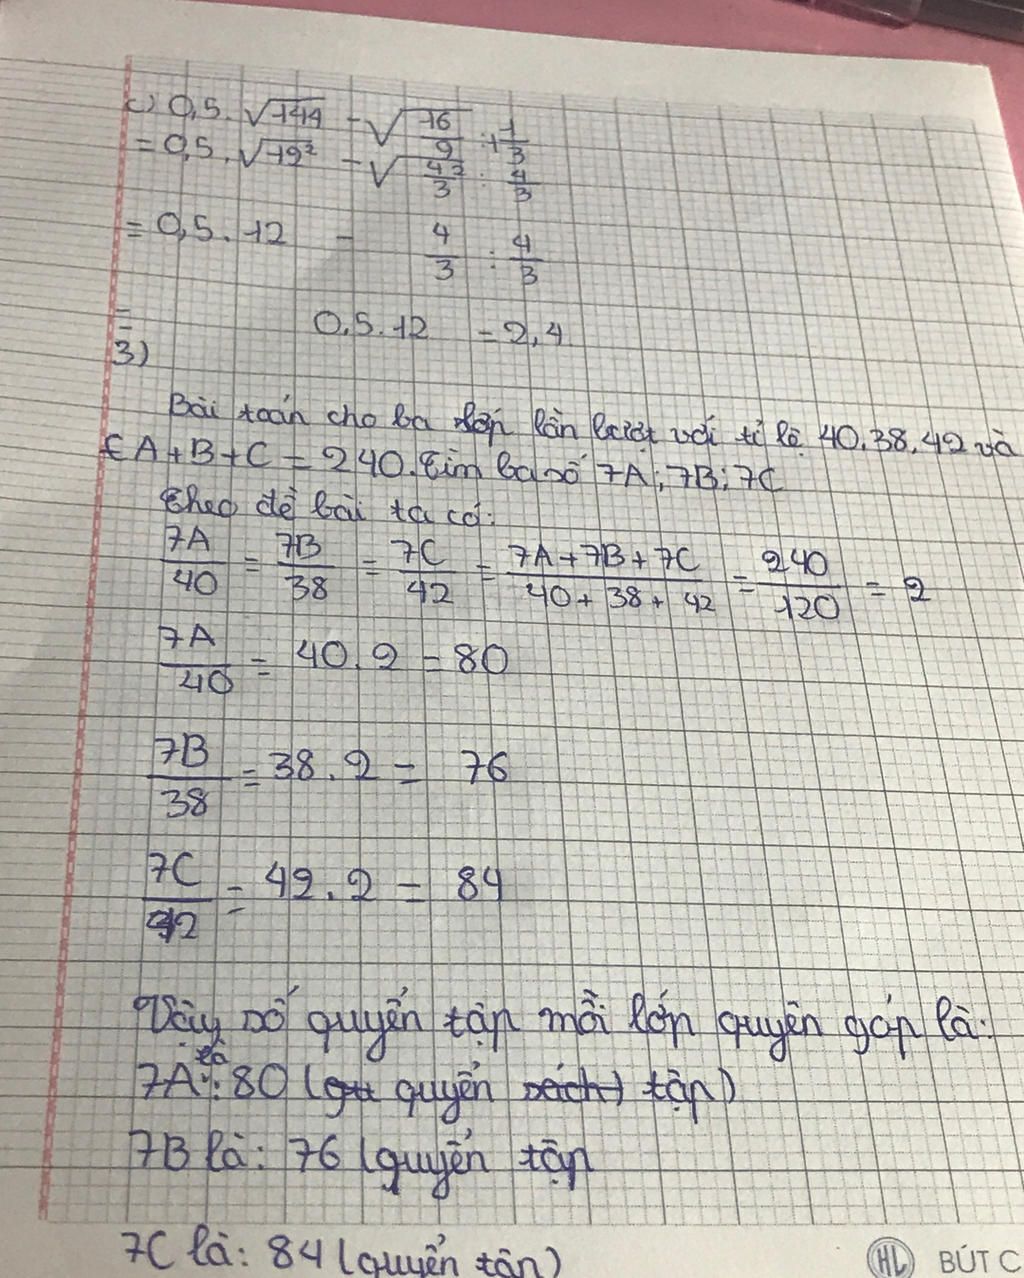 c) 0,5.√144 - √16/9 : +1/3
= 0,5.√12² - √4²/3 : 4/3
= 0,5.12 - 4/3 : 4/3
= 0,5.12 = 2,4
3)
Bài toán cho ba lớp lần lượt với tỉ lệ 40.38.42 và
A+B+C = 240. Tìm ba số 7A; 7B; 7C
Theo đề bài ta có:
7A/40 = 7B/38 = 7C/42 = 7A+7B+7C/40+38+42 = 240/120 = 2
7A/40 = 40.2 = 80
7B/38 = 38.2 = 76
7C/42 = 42.2 = 84
Vậy số quyển tập mỗi lớp quyên góp là:
7A là: 80 (quyển tập)
7B là: 76 (quyển tập
7C là: 84 (quyển tập)
HL BÚT C